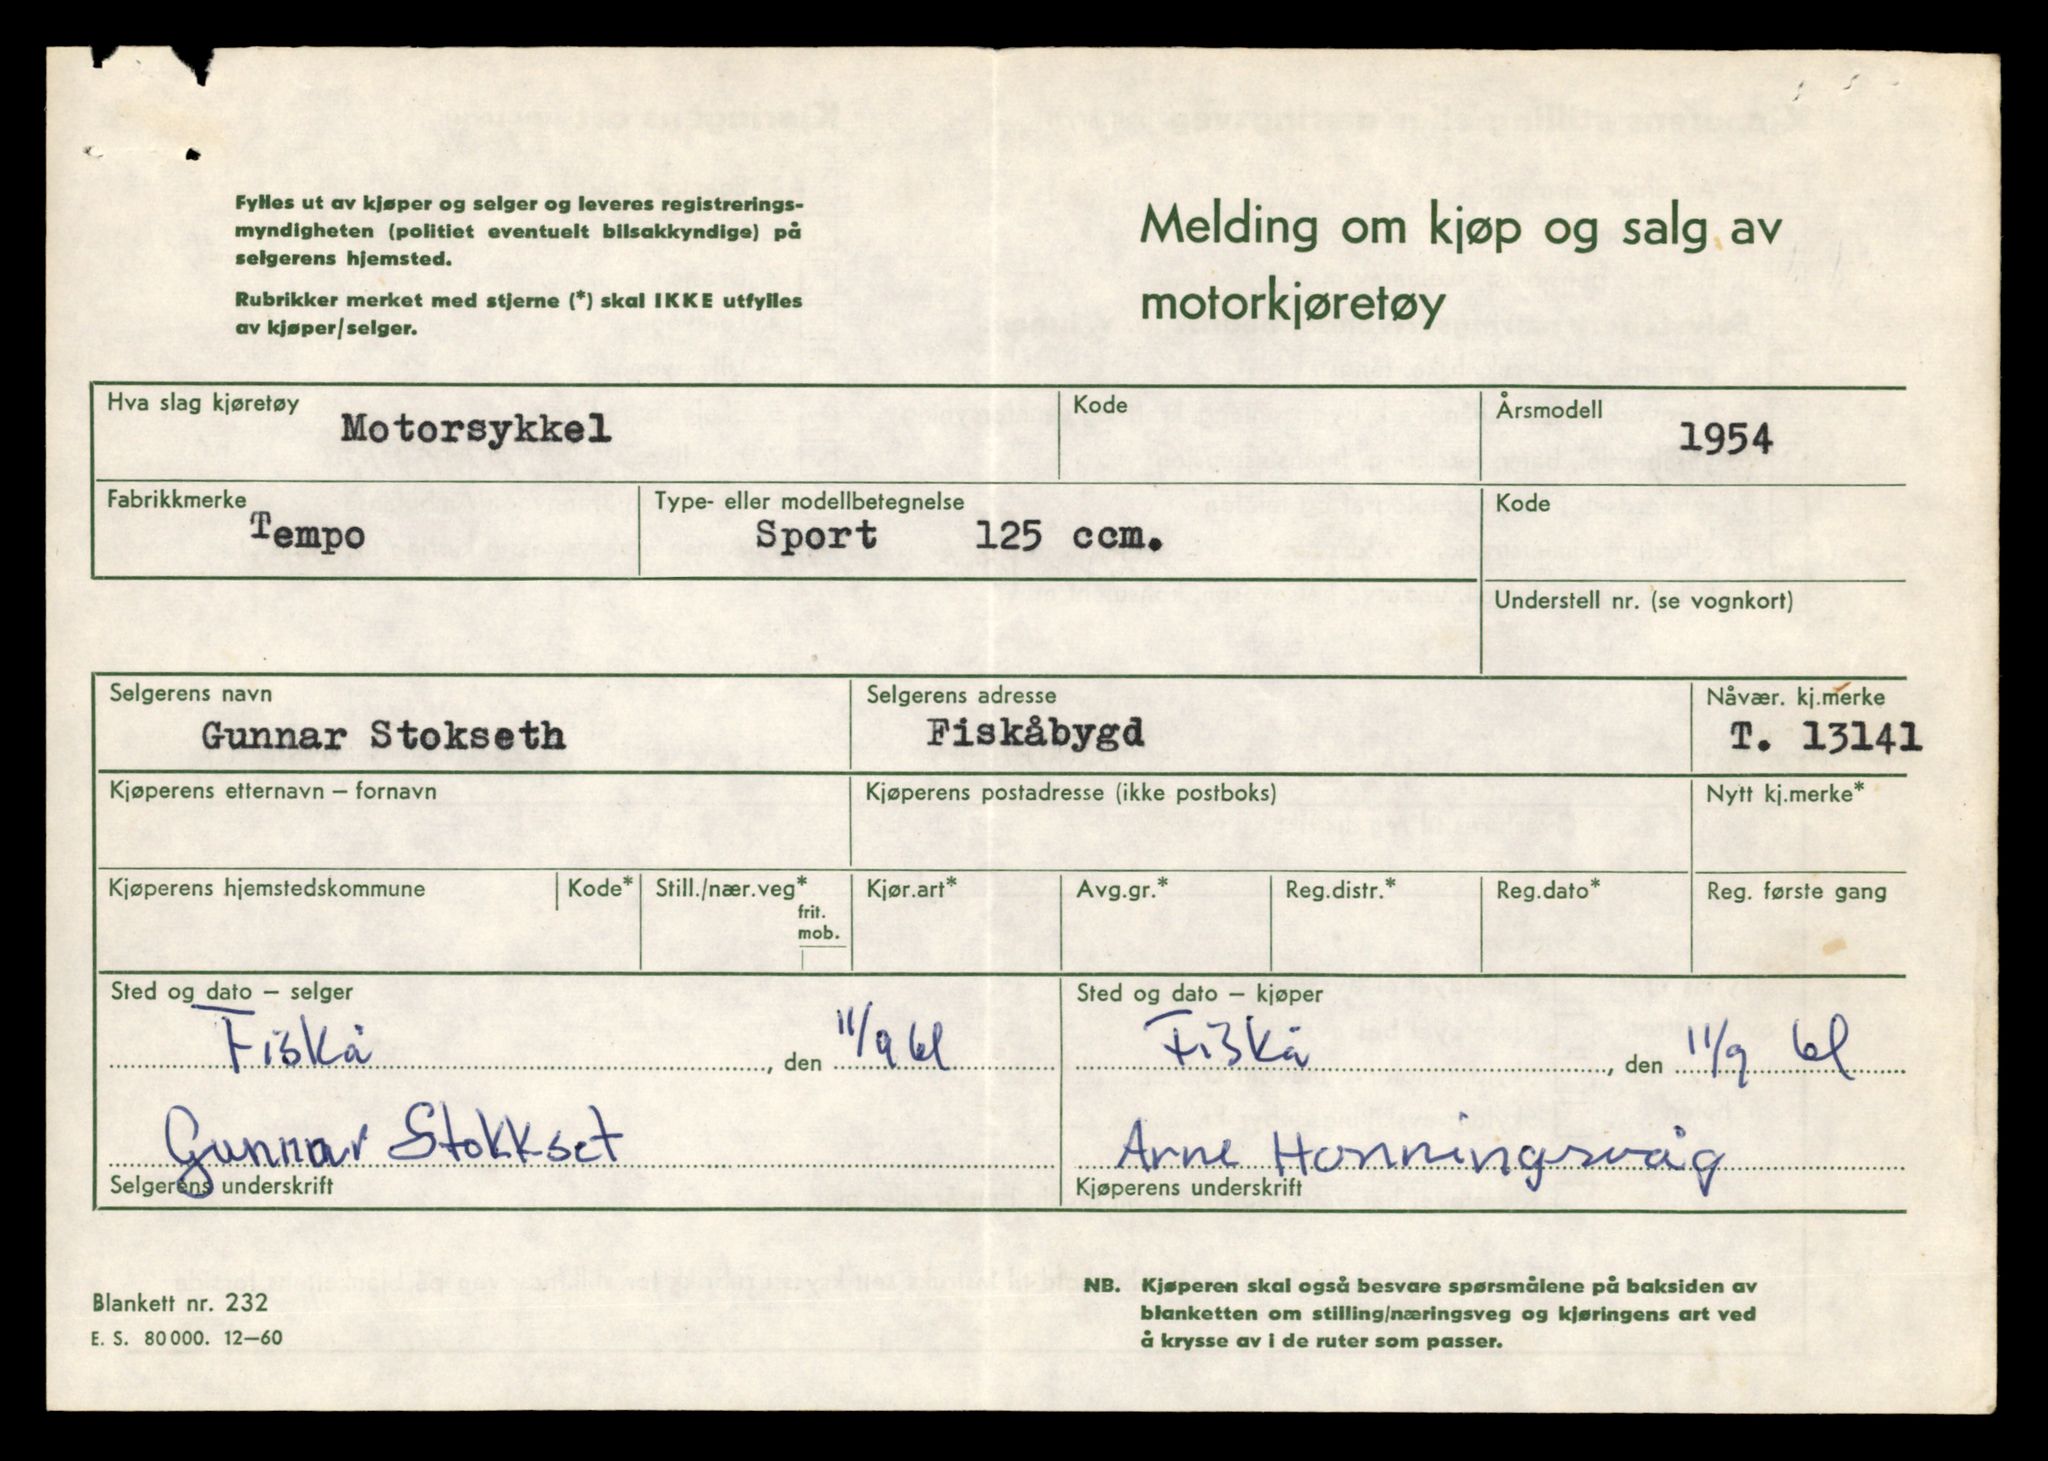 Fylles ut av kjøper og selger og leveres registrerings-
myndigheten (politiet eventuelt bilsakkyndige) på
selgerens hjemsted.
Rubrikker merket med stjerne (*) skal IKKE utfylles
av kjøper/selger.
Melding om kjøp og salg av
motorkjøretøy
Hva slag kjøretøy Kode Årsmodell
Motorsykkel 1954
Fabrikkmerke Type- eller modellbetegnelse Kode
Tempo Sport 125 ccm.
Understell nr. (se vognkort)
Selgerens navn Selgerens adresse Nåvær. kj.merke
Gunnar Stokseth Fiskåbygd T. 13141
Kjøperens etternavn – fornavn Kjøperens postadresse (ikke postboks) Nytt kj.merke*
Kjøperens hjemstedskommune Kode* Still./nær.veg* Kjør.art* Avg.gr.* Reg.distr.* Reg.dato* Reg. første gang
frit.
mob.
Sted og dato – selger Sted og dato – kjøper
Fiskå, den 11/9 61 Fiskå, den 11/9 61
Gunnar Stokkset Arne Honningsvåg
Selgerens underskrift Kjøperens underskrift
Blankett nr. 232
E. S. 80 000. 12–60
NB. Kjøperen skal også besvare spørsmålene på baksiden av
blanketten om stilling/næringsveg og kjøringens art ved
å krysse av i de ruter som passer.